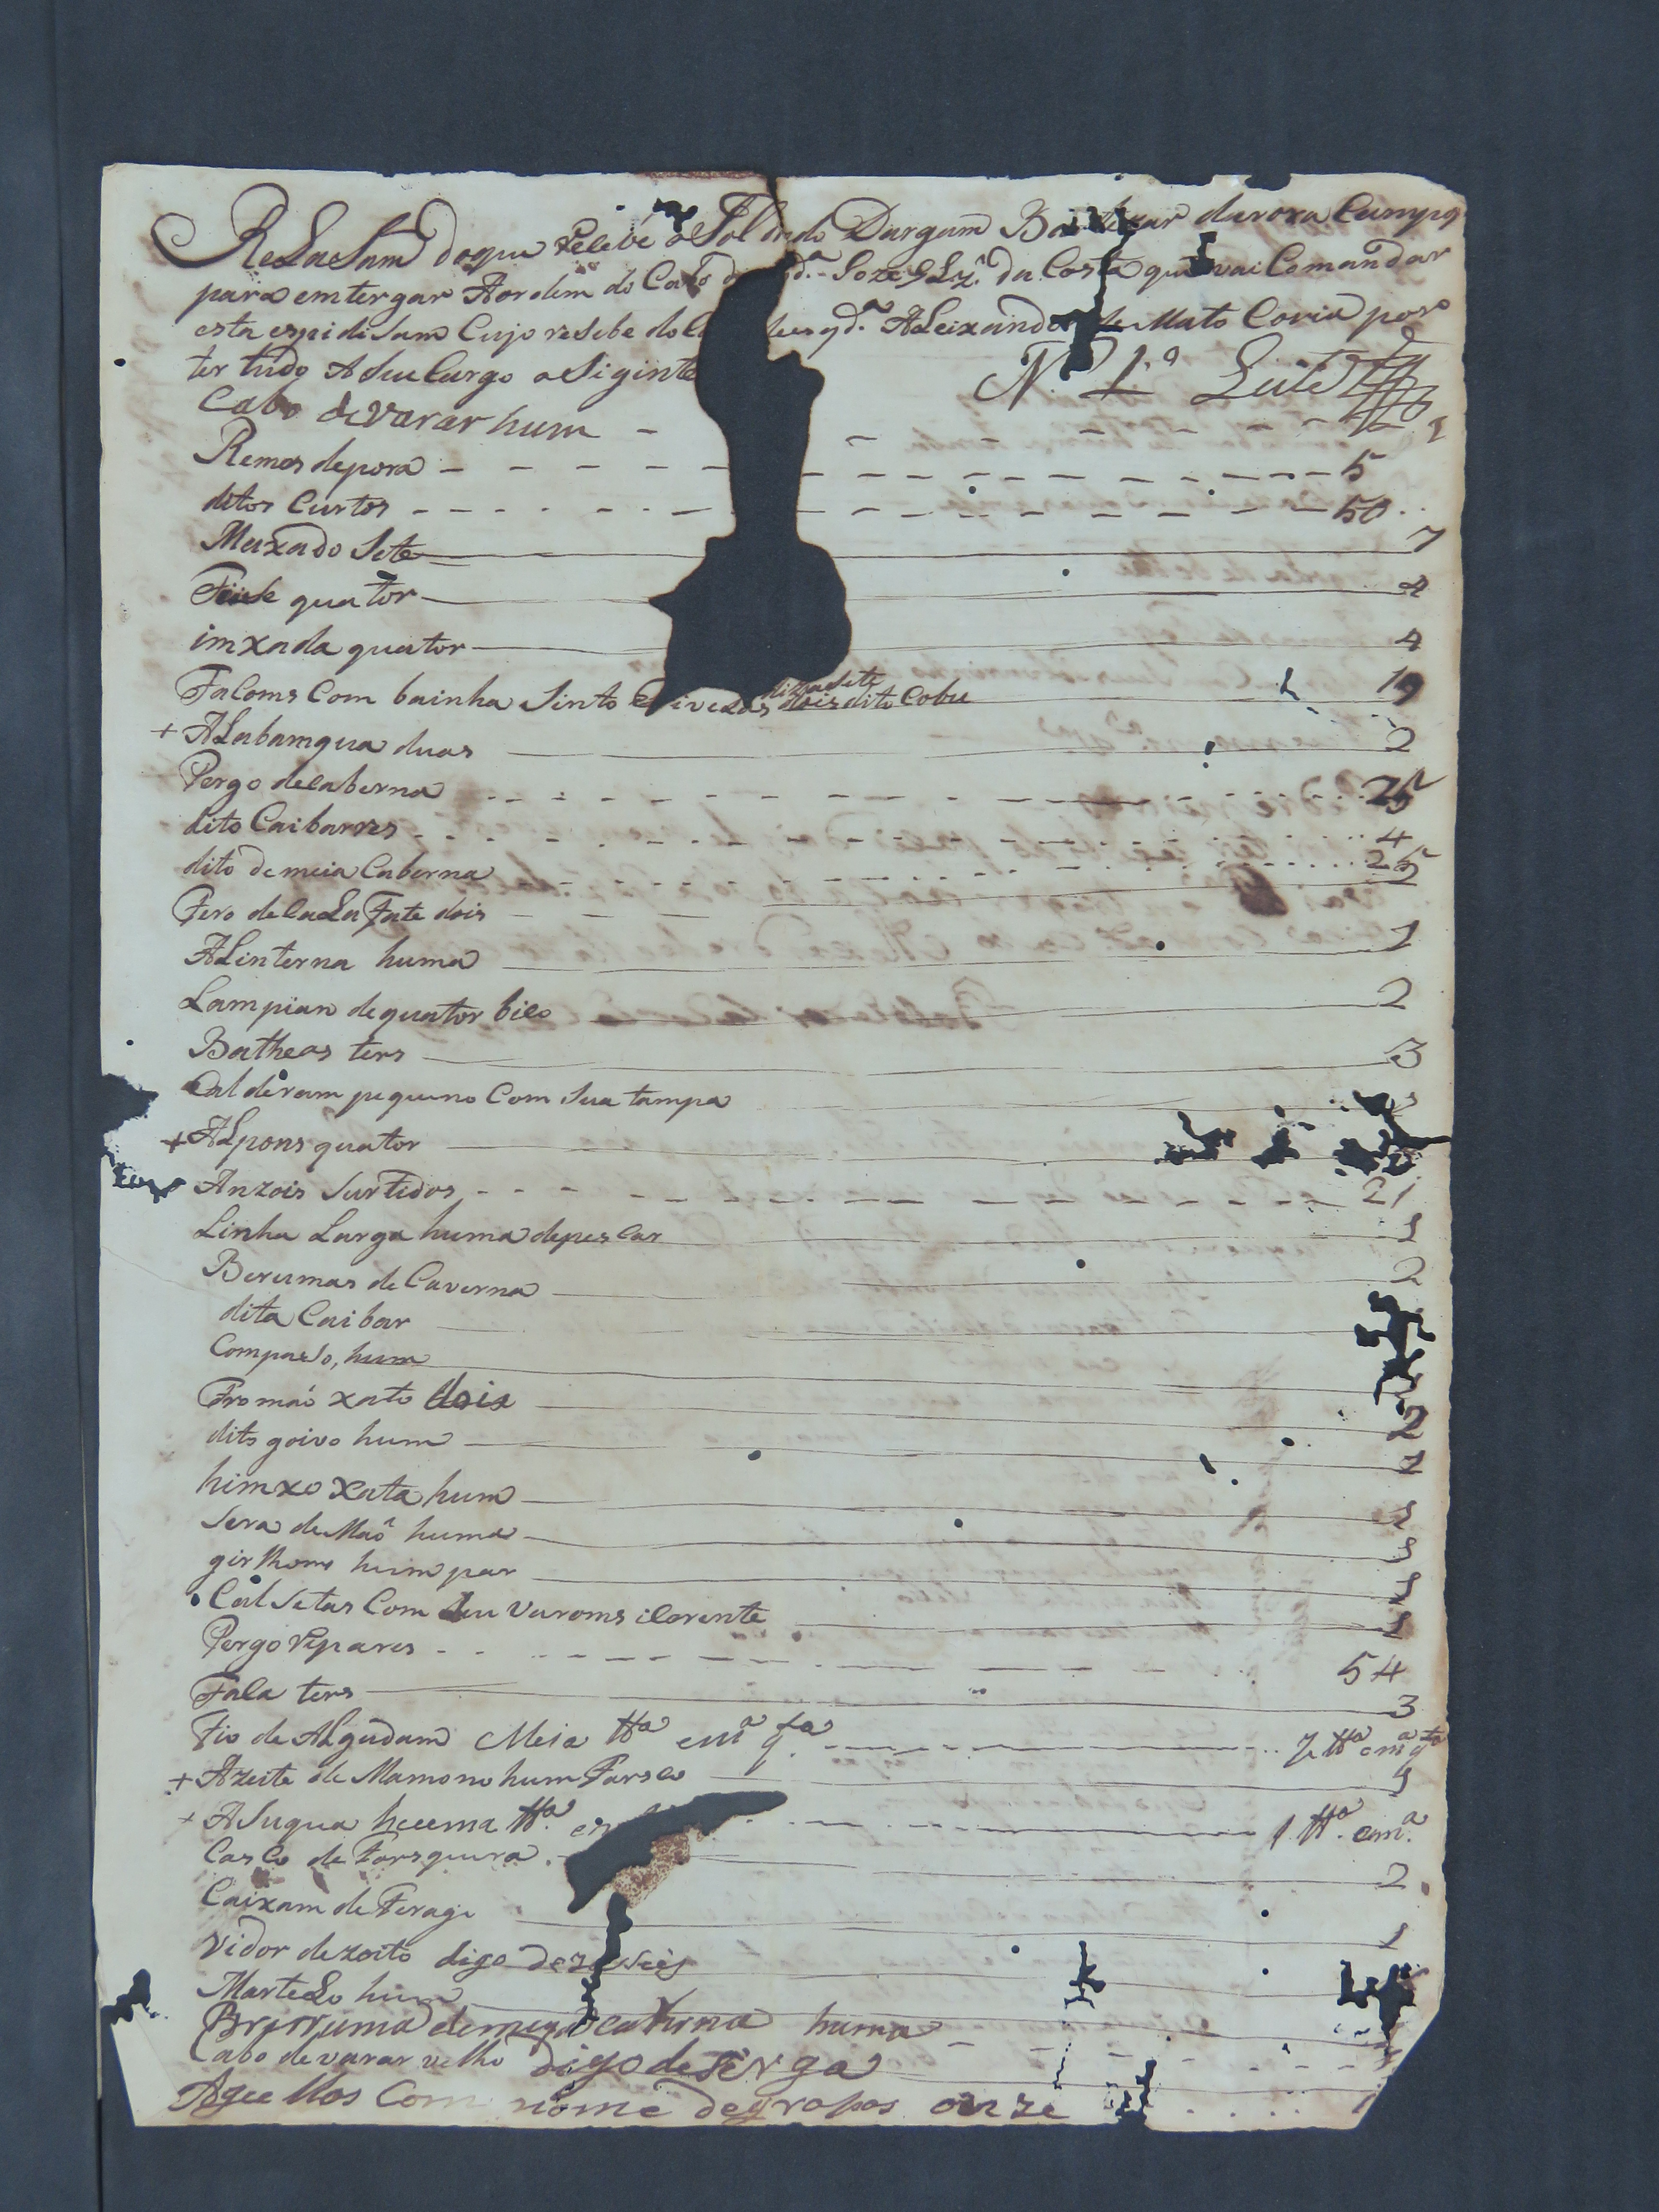 ReLaSam do que Resebe o Soldado Dargam Baltezar daroxa Campog
para emtergar Aordem do Cabo de Sozé Glz. da Costa que vai Comandar
esta espidisam Cujo resebe do Ca desqd.ª ALeixandre de Mato Coria poso
ter tudo A seu Cargo o Siginte N. 1.º Leite
Cabo de varar hum - 1
Remos depora - 5
ditos Curtos - 50
Maxado Sete 7
quator 4
imxada quator 4
Facoms Com bainha Sinto e fivelas dizasete dois dito Cobu 19
+ ALabamqua duas 2
Pergo decaberna 25
dito Caibarres 4
dito de meia Caberna 25
Fero de CaLaFate dois 2
ALinterna huma 1
Lampian de quator bico 2
Batheas ters 3
Calderam piqueno Com Sua tampa
+ ALpons quator
Anzois Surtidos 21
Linha Larga huma depescar 1
Berumas de Caverna 2
dita Caibar
Compaso, hum
Fromaó xato dois 2
dito goivo hum 1
himxo xata hum 1
Sera de Maô huma 1
girlhoms him par 1
Calsetas Com Seu Varoms icorente 1
Pergo Ripares 54
Faca ters 3
Fio de ALgudam Meia ttª em.ª q.ta ½ ttª em.ª q.ta
+ Azeite de Mamono hum Farsco 1
+ ASuqua huma ttª. 1 ttª. em.ª
Casco de Farsqueira 2
Caixam de Feragi 1
Vidor dezoito digo dezaseis
MarteLo hum
Brrruma de meya caverna huma
Cabo de varar velho digo de Sirga
Aguelhos Com nome degropos onze